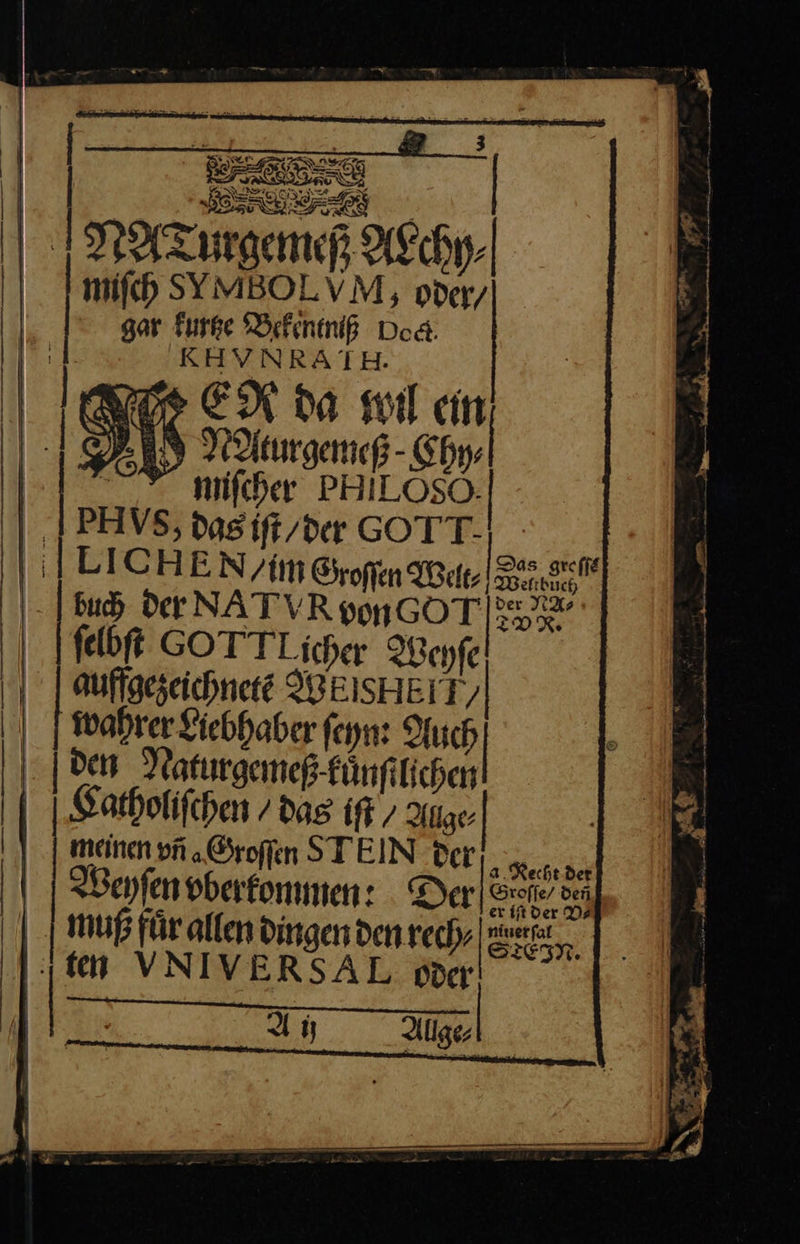 3
NATurgemeß AEchy⸗
miſch SYMBOLVM, oder/
gar kurtze Bekentniß Doct.
KHVNRATH.
WER da wil ein
NAturgemeß-Chy⸗
miſcher PHILOSO-
PHVS, das iſt/der GOTT-
LICHEN/im Groſſen Welt⸗
buch der NATVR von GOT
ſelbſt GOTTLicher Weyſe
auffgezeichnetẽ WEISHEIT/
wahrer Liebhaber ſeyn: Auch
den Naturgemeß-kuͤnſtlichen
Catholiſchen / das iſt / Allge⸗
meinen vñ a Groſſen STEIN der
Weyſen vberkommen: Der
muß fuͤr allen dingen den rech⸗
ten VNIVERSAL oder
Das greſſe
Weltbuch
der NA⸗
TVR.
a Recht der
Groſſe/ deñ
er iſt der V⸗
niuerſal
STEJN.
A ij Allge⸗